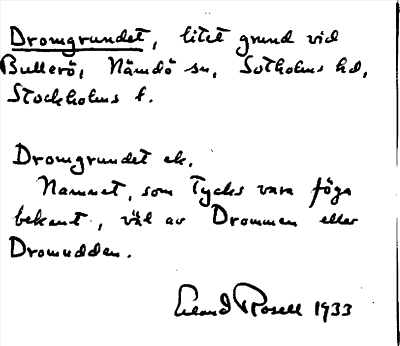 Dromgrundet, litet grund vid
Bullerö, Nämdö sn, Sotholms hd,
Stockholms l.
Dromgrundet ek.
Namnet, som tycks vara föga
bekant, väl av Drommen eller
Dromudden.
Erland Rosell 1933